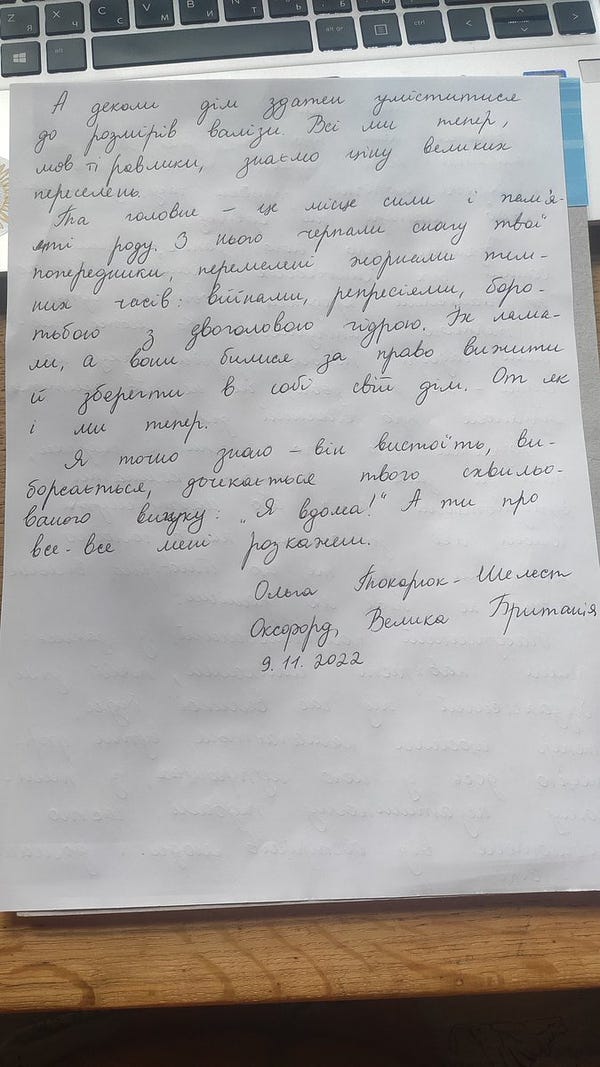 Z Я
X Ч
C С
V М
B И
N Т
alt
alt gr
ctrl
<
>
А деколи дім здатен уміститися
до розмірів валізи. Всі ми тепер,
мов ті равлики, знаємо ціну великих
переселень.
Та головне – це місце сили і пам'я-
ті роду. З нього черпали снагу твої
попередники, перемелені жорнами тем-
них часів: війнами, репресіями, боро-
тьбою з двоголовою гідрою. Їх лама-
ли, а вони билися за право вижити
й зберегти в собі свій дім. От як
і ми тепер.
Я точно знаю – він вистоїть, ви-
борсається, дочекається твого схвильо-
ваного вигуку: „Я вдома!" А ти про
все-все мені розкажеш.
Ольга Токарюк-Шелест
Оксфорд, Велика Британія
9.11.2022